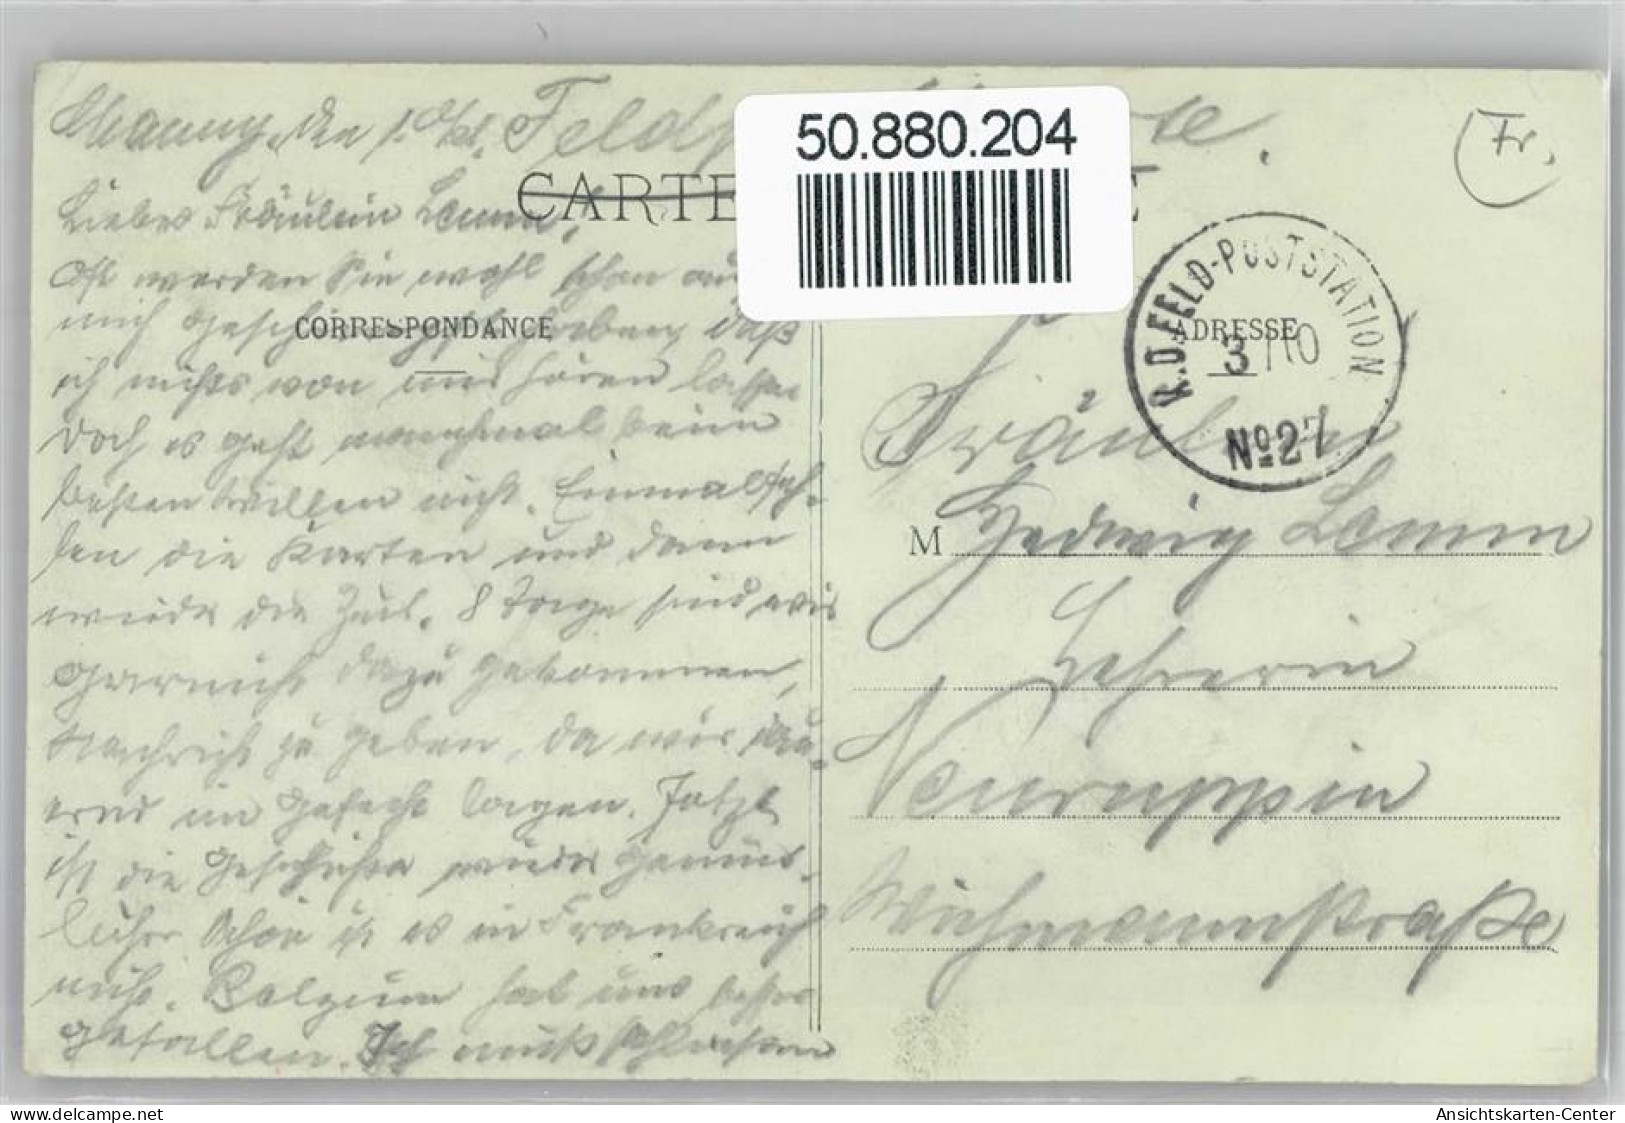 Chauny, den 1. Okt. Feldp rte.
Fr.
50.880.204
CARTE E
Liebes Fräulein Lemm!
Oft werden Sie wohl schon auf
mich geschimpft haben, daß
ich nichts von mir hören lasse.
CORRESPONDANCE
Doch es geht manchmal beim
besten Willen nicht. Einmal feh-
len die Karten und dann
wieder die Zeit. 8 Tage sind wir
garnicht dazu gekommen,
Nachricht zu geben, da wir dau-
ernd im Gefecht lagen. Jetzt
ist die Geschichte wieder gemüt-
licher. Schön ist es in Frankreich
nicht. Belgien hat uns besser
gefallen. Ich muß schließen
K.D.FELD-POSTSTATION
3/10
No 27
ADRESSE
Fräulein
M Hedwig Lemm
Lehrerin
Neuruppin
Wichmannstraße
www.delcampe.net
Ansichtskarten-Center